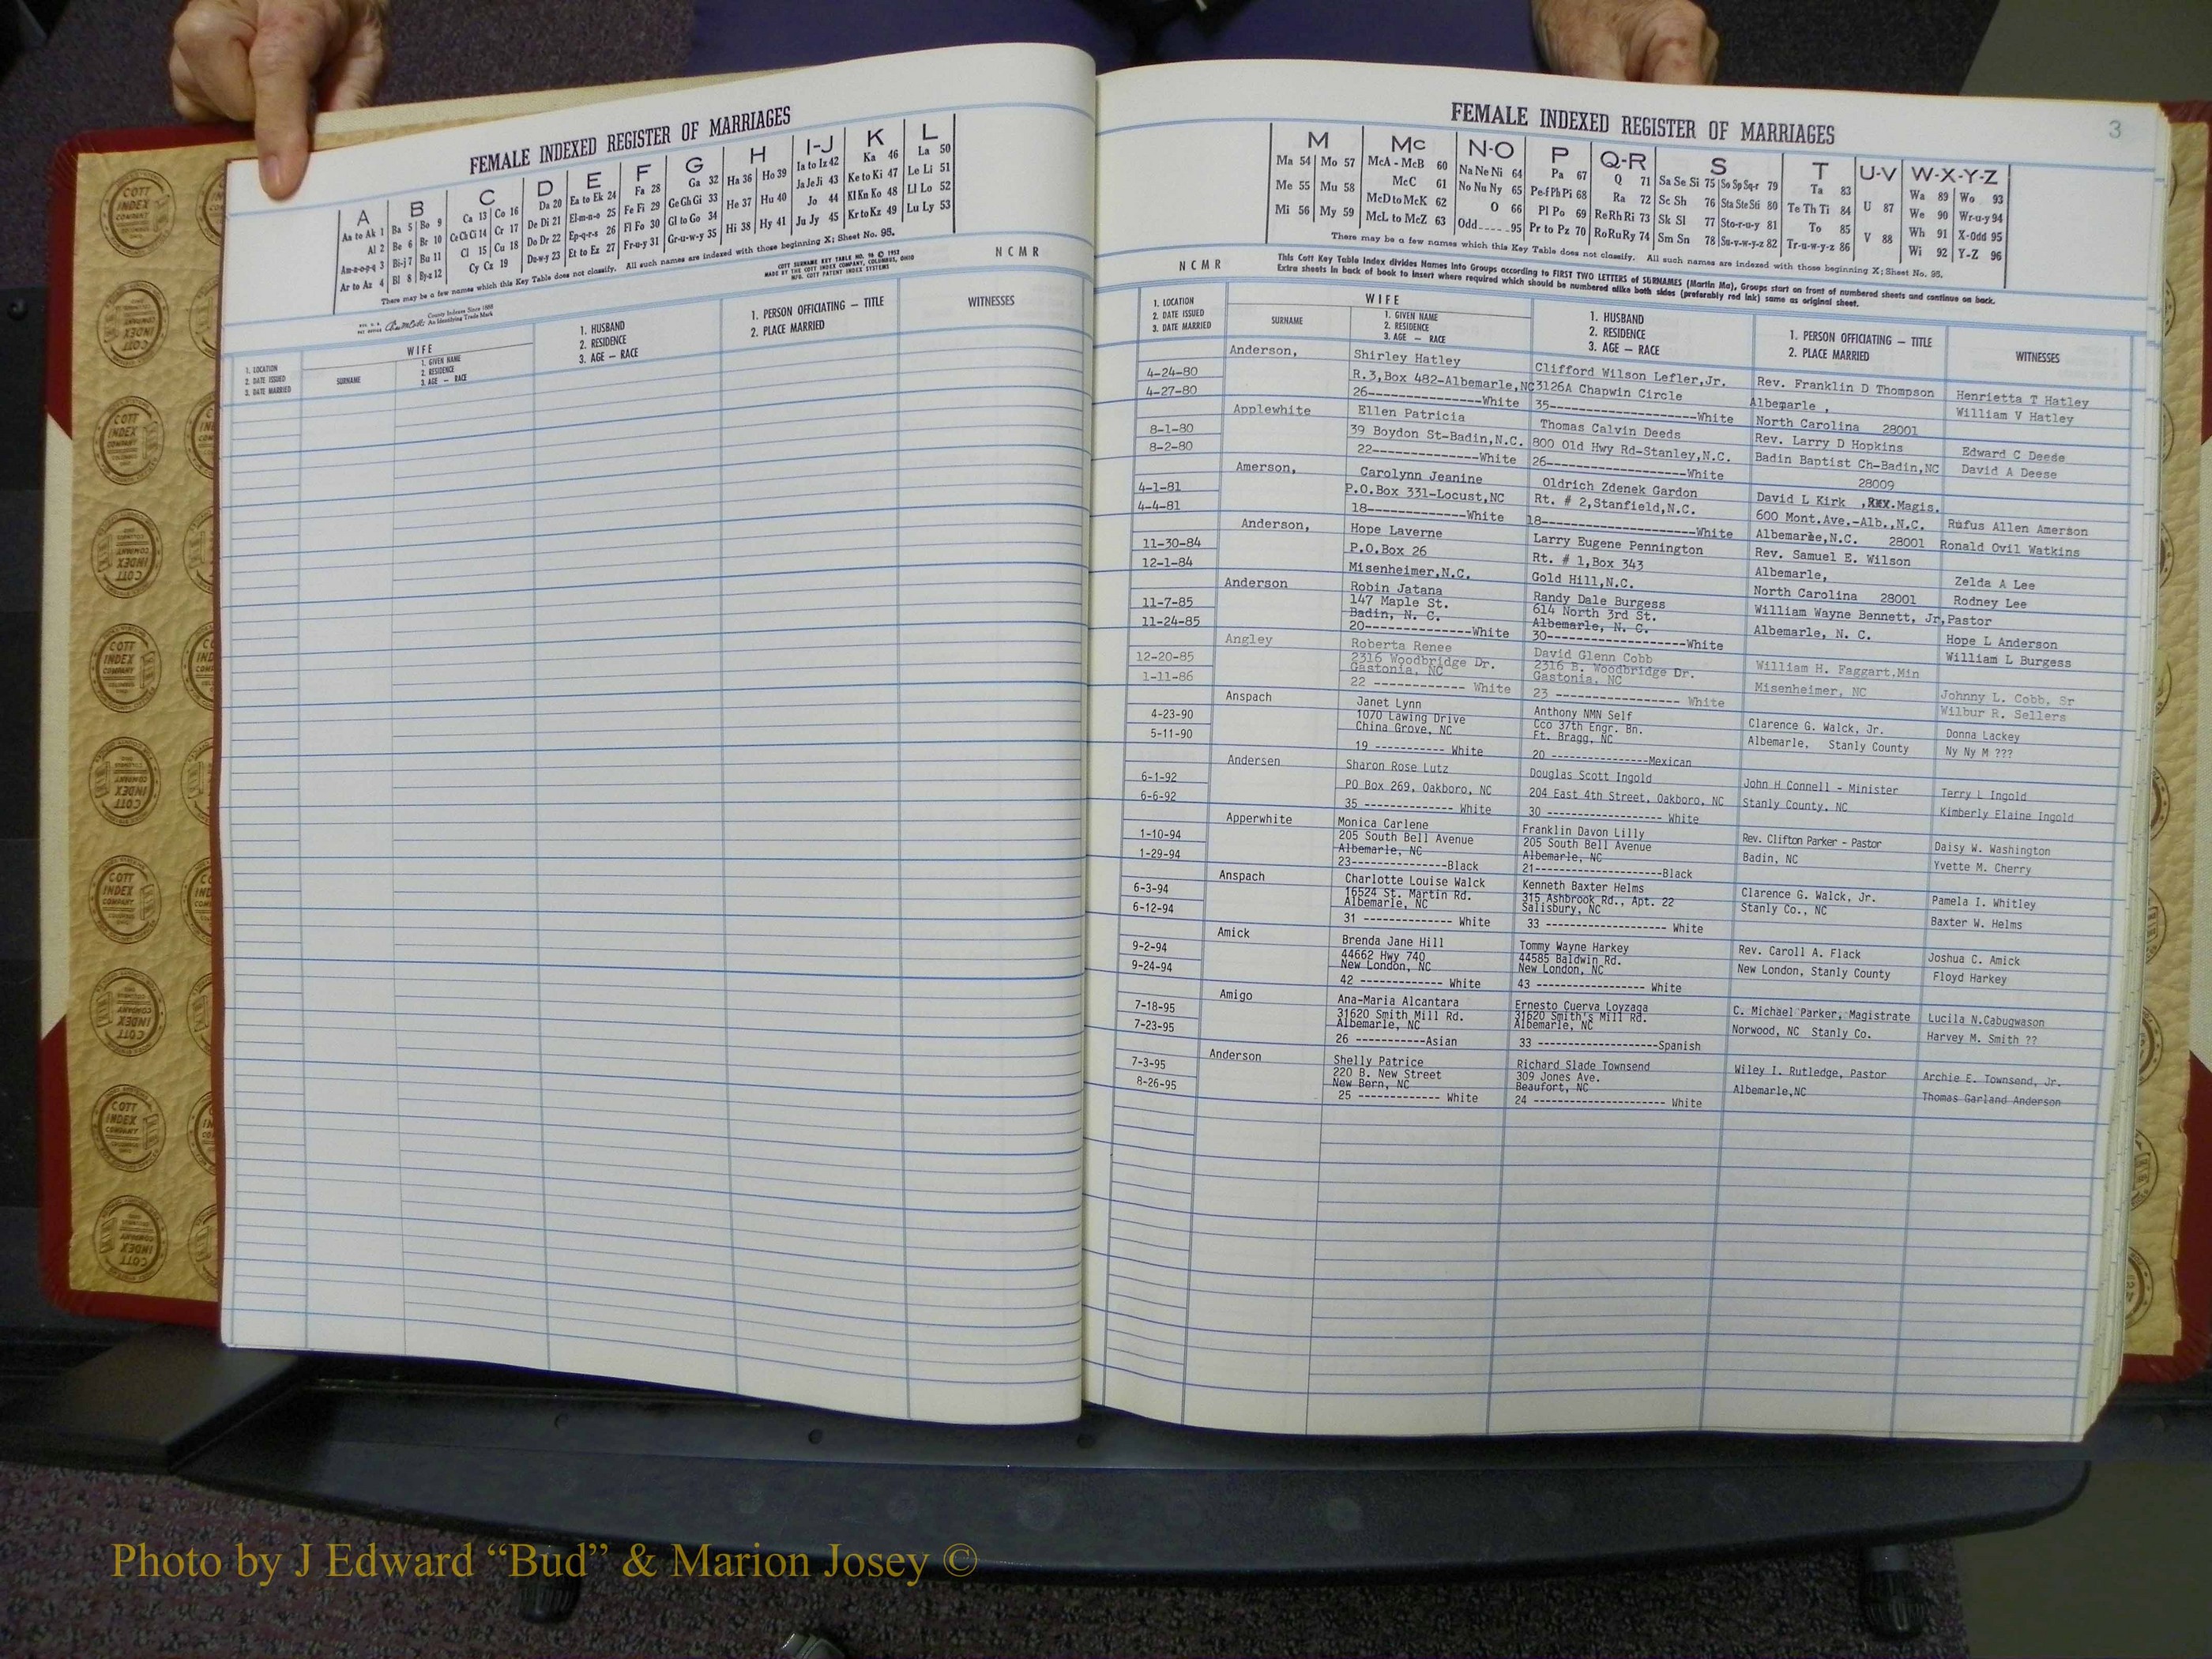 FEMALE INDEXED REGISTER OF MARRIAGES
A B C D E F G H I-J K L
Aa to Ak 1 Ba 5 Bo 9 Ca 13 Co 16 Da 20 Ea to Ek 24 Fa 28 Ga 32 Ha 36 Ho 39 Ia to Iz 42 Ka 46 La 50
Al 2 Be 6 Br 10 Ce Ch Ci 14 Cr 17 De Di 21 El-m-n-o 25 Fe Fi 29 Ge Gh Gi 33 He 37 Hu 40 Ja Je Ji 43 Ke to Ki 47 Le Li 51
Am-n-o-p-q 3 Bi-j 7 Bu 11 Cl 15 Cu 18 Do Dr 22 Ep-q-r-s 26 Fl Fo 30 Gl to Go 34 Hi 38 Hy 41 Jo 44 Kl Kn Ko 48 Ll Lo 52
Ar to Az 4 Bl 8 By-z 12 Cy Cz 19 Du-w-y 23 Et to Ez 27 Fr-u-y 31 Gr-u-w-y 35 Ju Jy 45 Kr to Kz 49 Lu Ly 53
There may be a few names which this Key Table does not classify. All such names are indexed with those beginning X; Sheet No. 95.
COTT SURNAME KEY TABLE NO. 96 © 1952
MADE BY THE COTT INDEX COMPANY, COLUMBUS, OHIO
MFG. COTT PATENT INDEX SYSTEMS
N C M R
County Indexes Since 1888
An Identifying Trade Mark
1. LOCATION
2. DATE ISSUED
3. DATE MARRIED
WIFE
SURNAME
1. GIVEN NAME
2. RESIDENCE
3. AGE — RACE
1. HUSBAND
2. RESIDENCE
3. AGE — RACE
1. PERSON OFFICIATING — TITLE
2. PLACE MARRIED
WITNESSES
FEMALE INDEXED REGISTER OF MARRIAGES
3
M Mc N-O P Q-R S T U-V W-X-Y-Z
Ma 54 Mo 57 McA - McB 60 Na Ne Ni 64 Pa 67 Q 71 Sa Se Si 75 So Sp Sq-r 79 Ta 83 U 87 Wa 89 Wo 93
Me 55 Mu 58 McC 61 No Nu Ny 65 Pe-f Ph Pi 68 Ra 72 Sc Sh 76 Sta Ste Sti 80 Te Th Ti 84 V 88 We 90 Wr-u-y 94
Mi 56 My 59 McD to McK 62 O 66 Pl Po 69 Re Rh Ri 73 Sk Sl 77 Sto-r-u-y 81 To 85 Wh 91 X-Odd 95
McL to McZ 63 Odd 95 Pr to Pz 70 Ro Ru Ry 74 Sm Sn 78 Su-v-w-y-z 82 Tr-u-w-y-z 86 Wi 92 Y-Z 96
There may be a few names which this Key Table does not classify. All such names are indexed with those beginning X; Sheet No. 95.
This Cott Key Table Index divides Names into Groups according to FIRST TWO LETTERS of SURNAMES (Martin Ma), Groups start on front of numbered sheets and continue on back.
Extra sheets in back of book to insert where required which should be numbered alike both sides (preferably red ink) same as original sheet.
N C M R
1. LOCATION
2. DATE ISSUED
3. DATE MARRIED
WIFE
SURNAME
1. GIVEN NAME
2. RESIDENCE
3. AGE — RACE
1. HUSBAND
2. RESIDENCE
3. AGE — RACE
1. PERSON OFFICIATING — TITLE
2. PLACE MARRIED
WITNESSES
Anderson, Shirley Hatley Clifford Wilson Lefler,Jr. Rev. Franklin D Thompson Henrietta T Hatley
4-24-80 R.3,Box 482-Albemarle,NC 3126A Chapwin Circle Albemarle , William V Hatley
4-27-80 26---------------White 35-------------------White North Carolina 28001
Applewhite Ellen Patricia Thomas Calvin Deeds Rev. Larry D Hopkins Edward C Deese
8-1-80 39 Boydon St-Badin,N.C. 800 Old Hwy Rd-Stanley,N.C. Badin Baptist Ch-Badin,NC David A Deese
8-2-80 22--------------White 26-------------------White 28009
Amerson, Carolynn Jeanine Oldrich Zdenek Gardon David L Kirk ,XXX.Magis. Rufus Allen Amerson
4-1-81 P.O.Box 331-Locust,NC Rt. # 2,Stanfield,N.C. 600 Mont.Ave.-Alb.,N.C. Ronald Ovil Watkins
4-4-81 18-------------White 18---------------------White Albemarle,N.C. 28001
Anderson, Hope Laverne Larry Eugene Pennington Rev. Samuel E. Wilson Zelda A Lee
11-30-84 P.O.Box 26 Rt. # 1,Box 343 Albemarle, Rodney Lee
12-1-84 Misenheimer,N.C. Gold Hill,N.C. North Carolina 28001
Anderson Robin Jatana Randy Dale Burgess William Wayne Bennett, Jr,Pastor Hope L Anderson
11-7-85 147 Maple St. 614 North 3rd St. Albemarle, N. C. William L Burgess
11-24-85 Badin, N. C. Albemarle, N. C.
20---------------White 30-------------------White
Angley Roberta Renee David Glenn Cobb William H. Faggart.Min Johnny L. Cobb, Sr
12-20-85 2316 Woodbridge Dr. 2316 B. Woodbridge Dr. Misenheimer, NC Wilbur R. Sellers
1-11-86 Gastonia, NC Gastonia, NC
22 ------------ White 23 ---------------- White
Anspach Janet Lynn Anthony NMN Self Clarence G. Walck, Jr. Donna Lackey
4-23-90 1070 Lawing Drive Cco 37th Engr. Bn. Albemarle, Stanly County Ny Ny M ???
5-11-90 China Grove, NC Ft. Bragg, NC
19 ----------- White 20 ----------------Mexican
Andersen Sharon Rose Lutz Douglas Scott Ingold John H Connell - Minister Terry L Ingold
6-1-92 PO Box 269, Oakboro, NC 204 East 4th Street, Oakboro, NC Stanly County, NC Kimberly Elaine Ingold
6-6-92 35 -------------- White 30 ------------------ White
Apperwhite Monica Carlene Franklin Davon Lilly Rev. Clifton Parker - Pastor Daisy W. Washington
1-10-94 205 South Bell Avenue 205 South Bell Avenue Badin, NC Yvette M. Cherry
1-29-94 Albemarle, NC Albemarle, NC
23---------------Black 21--------------------Black
Anspach Charlotte Louise Walck Kenneth Baxter Helms Clarence G. Walck, Jr. Pamela I. Whitley
6-3-94 16524 St. Martin Rd. 315 Ashbrook Rd., Apt. 22 Stanly Co., NC Baxter W. Helms
6-12-94 Albemarle, NC Salisbury, NC
31 -------------- White 33 ------------------- White
Amick Brenda Jane Hill Tommy Wayne Harkey Rev. Caroll A. Flack Joshua C. Amick
9-2-94 44662 Hwy 740 44585 Baldwin Rd. New London, Stanly County Floyd Harkey
9-24-94 New London, NC New London, NC
42 ------------- White 43 ----------------- White
Amigo Ana-Maria Alcantara Ernesto Cuerva Loyzaga C. Michael Parker, Magistrate Lucila N.Cabugwason
7-18-95 31620 Smith Mill Rd. 31620 Smith's Mill Rd. Norwood, NC Stanly Co. Harvey M. Smith ??
7-23-95 Albemarle, NC Albemarle, NC
26 -----------Asian 33 -------------------Spanish
Anderson Shelly Patrice Richard Slade Townsend Wiley I. Rutledge, Pastor Archie E. Townsend, Jr.
7-3-95 220 B. New Street 309 Jones Ave. Albemarle,NC Thomas Garland Anderson
8-26-95 New Bern, NC Beaufort, NC
25 ------------- White 24 --------------------- White
COTT INDEX COMPANY
Photo by J Edward “Bud” & Marion Josey ©